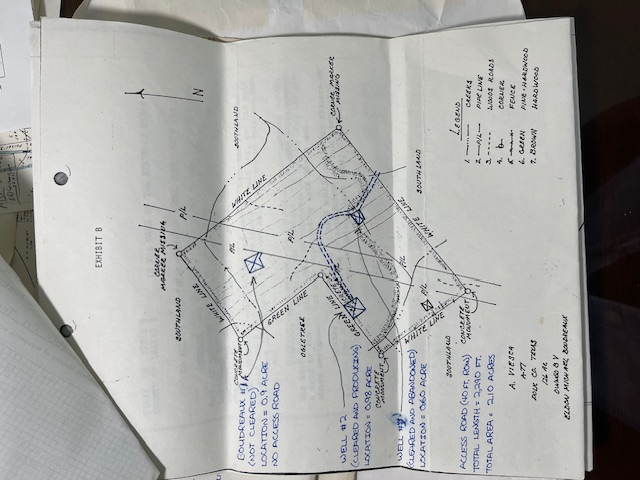 EXHIBIT B
N
CORNER MARKER MISSING
SOUTHLAND
P/L
WHITE LINE
CORNER MARKER MISSING
SOUTHLAND
P/L
P/L
WHITE LINE
SOUTHLAND
WHITE LINE
GREEN LINE
OGLETREE
GREEN LINE
P/L
P/L
WHITE LINE
CONCRETE MONUMENT
CONCRETE MONUMENT
CONCRETE MONUMENT
SOUTHLAND
BOUDREAUX #1
(NOT CLEARED)
LOCATION = 0.9 ACRE
NO ACCESS ROAD
WELL #2
(CLEARED AND PRODUCING)
LOCATION = 0.98 ACRE
WELL
(CLEARED AND ABANDONED)
LOCATION = 0.60 ACRE
ACCESS ROAD (40 FT. ROW)
TOTAL LENGTH = 2,290 FT.
TOTAL AREA = 2.10 ACRES
LEGEND
1. CREEKS
2. P/L PIPE LINE
3. WOODS ROADS
4. CORNER
5. FENCE
6. GREEN PINE-HARDWOOD
7. BROWN HARDWOOD
A. VIESCA
A-77
POLK CO. TEXAS
OWNED BY
ELDON MICHAEL BOUDREAUX